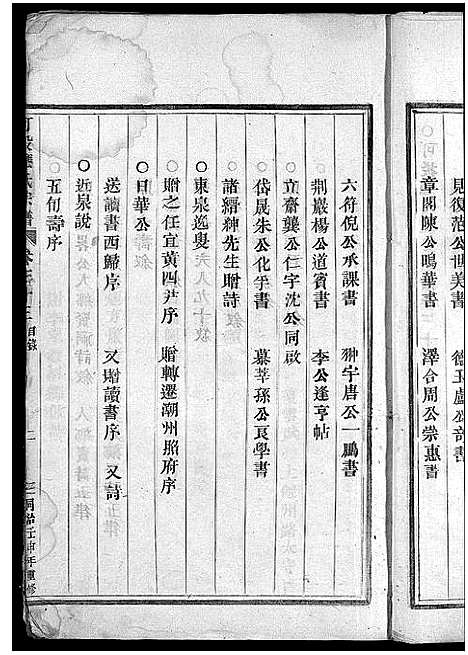 見復范公世美書
章閣陳公鳴華書　澤合周公崇惠書
六符倪公承課書　翀宇唐公一鵬書
荆巖楊公道賓書　李公逢亨帖
立齋龔公仁字沈公同啟
岱晟朱公化孚書　慕莘孫公良學書
諸縉紳先生贈詩
○東泉逸叟六八九十敍
○贈之任宜黃四尹序　贈轉遷潮州照府序
○日華公壽敍
送讀書西歸序　又贈讀書序　又詩
○近泉說
○五旬壽序
氏宗譜　目錄
同治壬申年重修